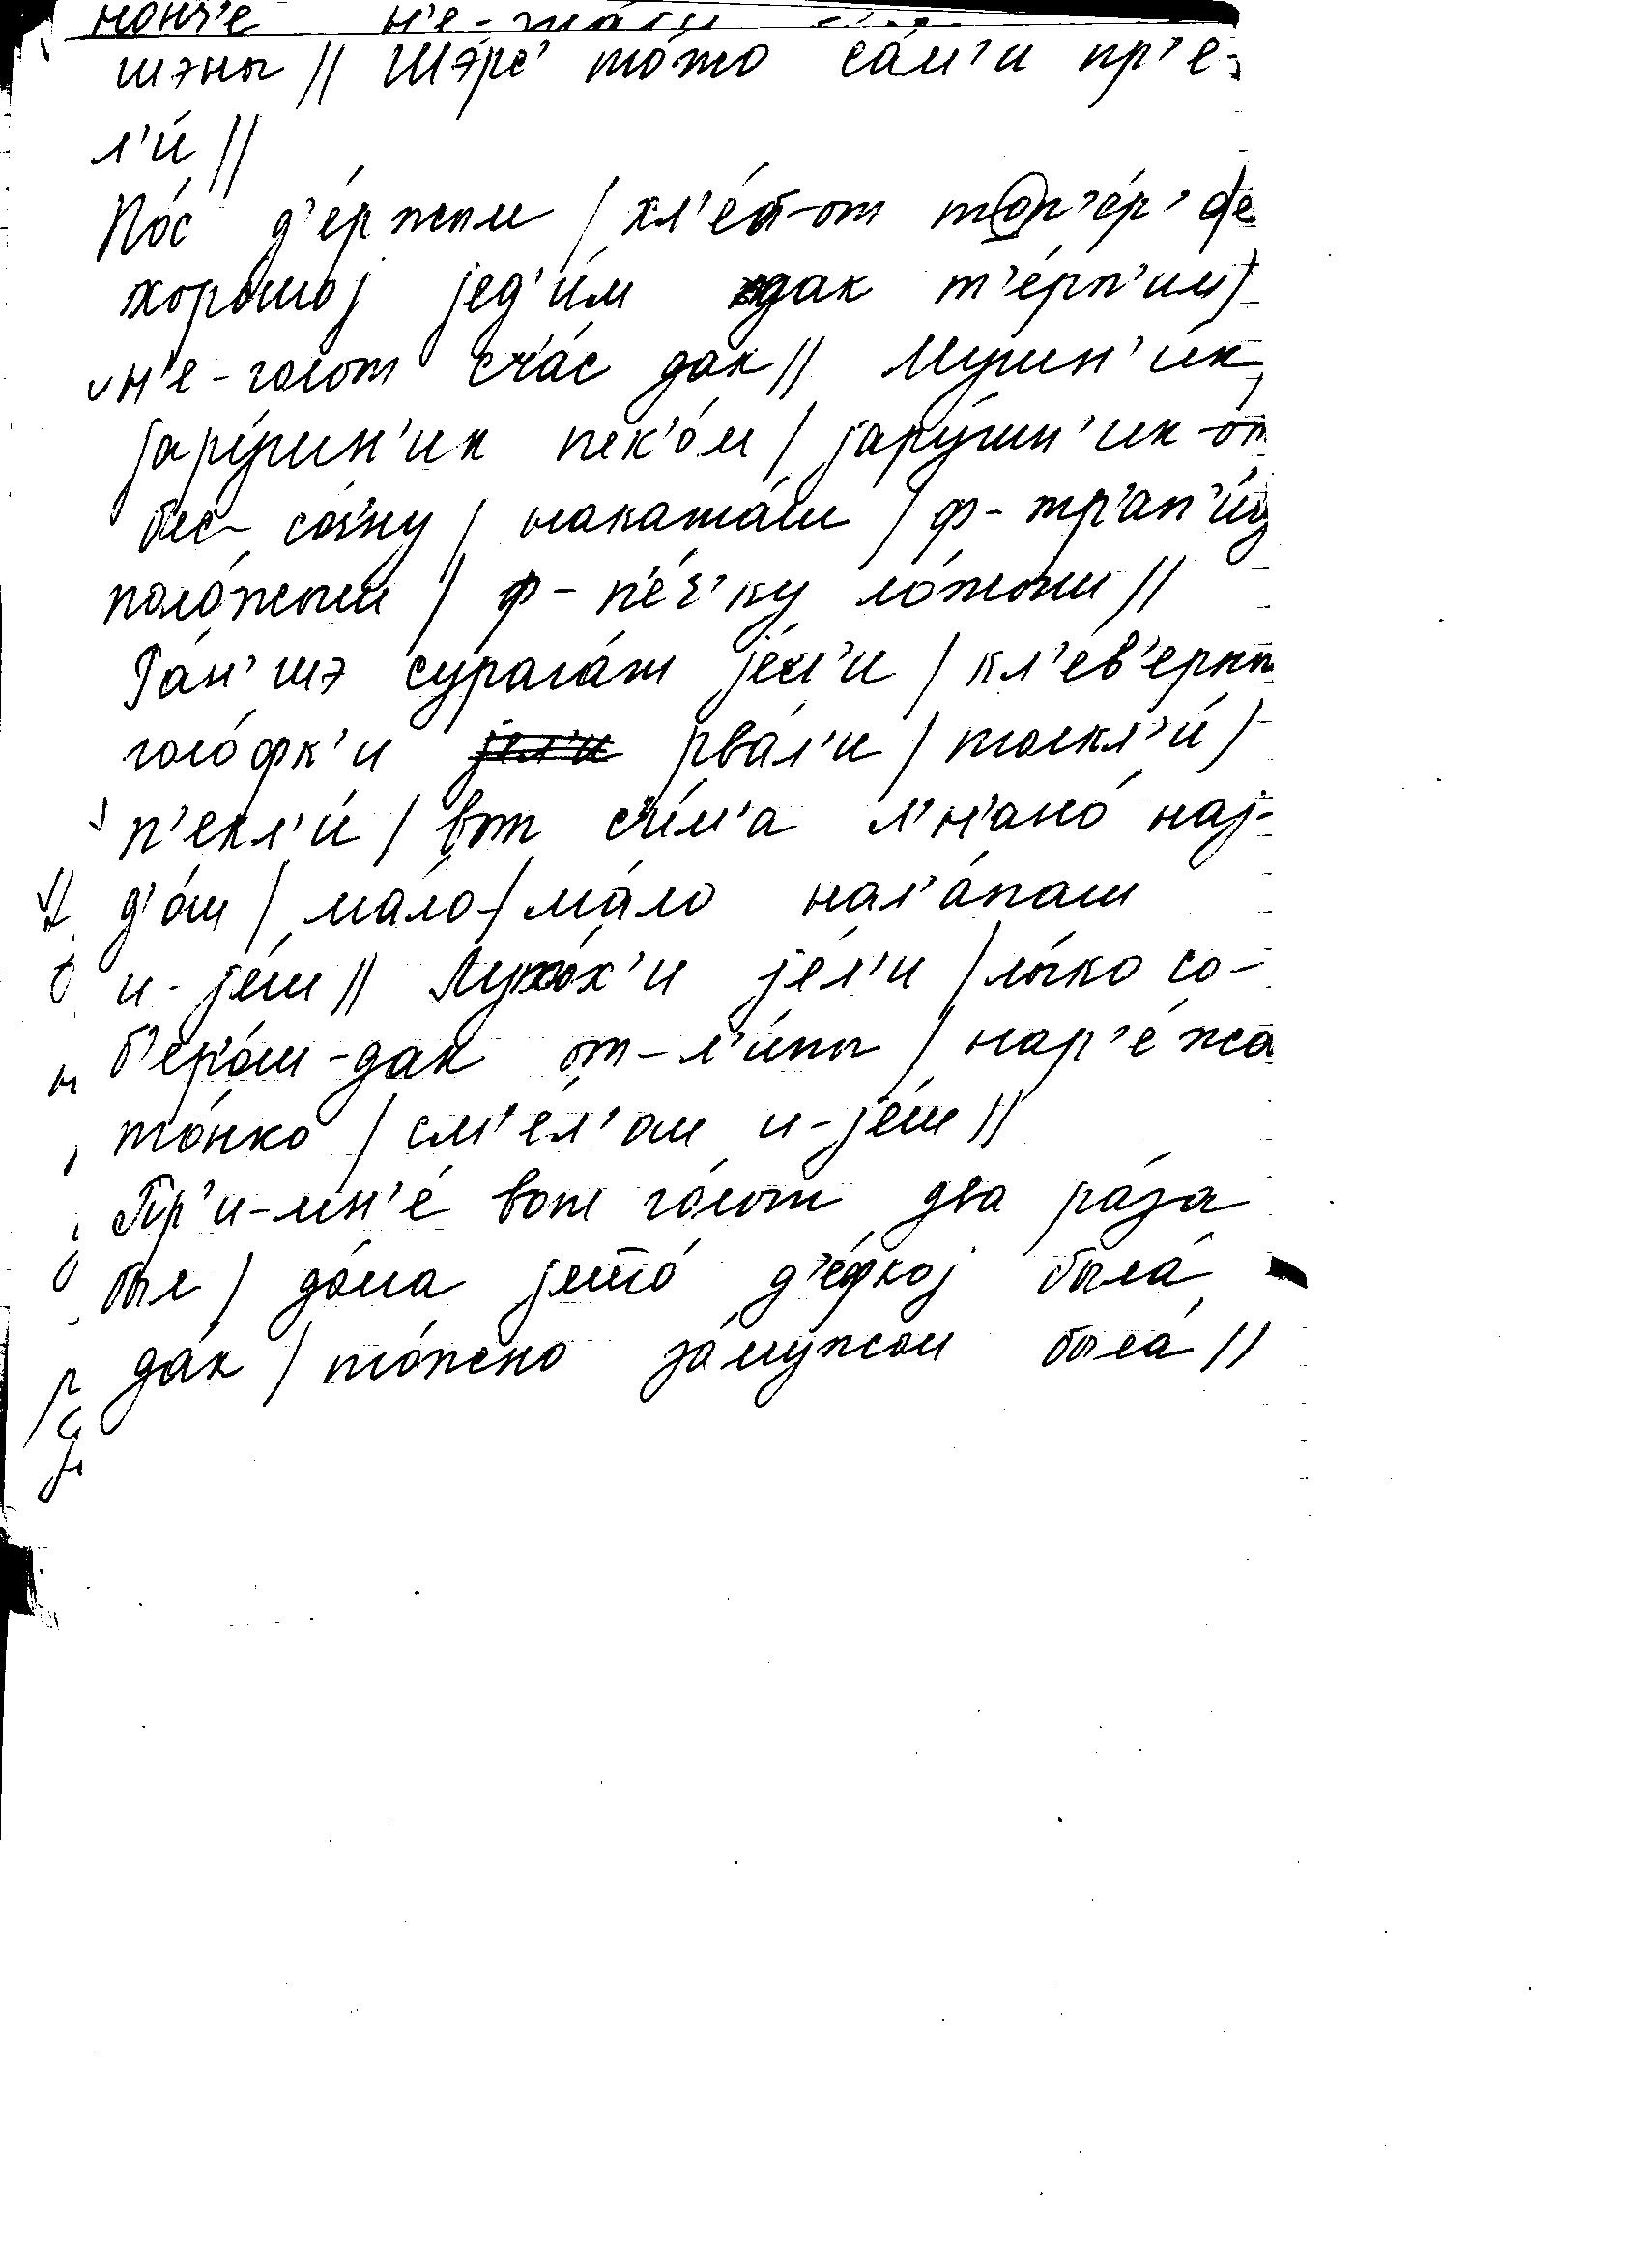 нонч'е н'е-
шэны // Шэрс' то́жо са́м'и пр'е-
л'и́ //
По́с д'е́ржым / хл'е́б-от топ'е́р' фс'е
хоро́шој јед'и́м дак т'е́рп'им /
н'е-голот сча́с дак // Мушн'и́к,
јару́шн'ик пек'о́м / јару́шн'ик-от
бес- со́ч'ну / наката́ш / ф- тр'ап'и́ц
поло́жыш / ф- п'е́ч'ку ло́жыш //
Ра́н'шэ сурага́т је́л'и / кл'е́в'ерны
голо́фк'и рва́л'и / толкл'и́ /
п'екл'и́ / вот с'и́м'а л'н'ано́ нај-
д'о́ш / ма́ло-ма́ло нал'а́паш
и-је́ш // Лухо́х'и је́л'и / лы́ко со-
б'ер'о́ш-дак от-л'и́пы / нар'е́жо
то́нко / см'е́л'ош и-је́ш //
Пр'и-мн'е́ вот го́лот два ра́за
был / до́ма јешо́ д'е́фкој была́
да́к / то́жно за́мужом была́ //